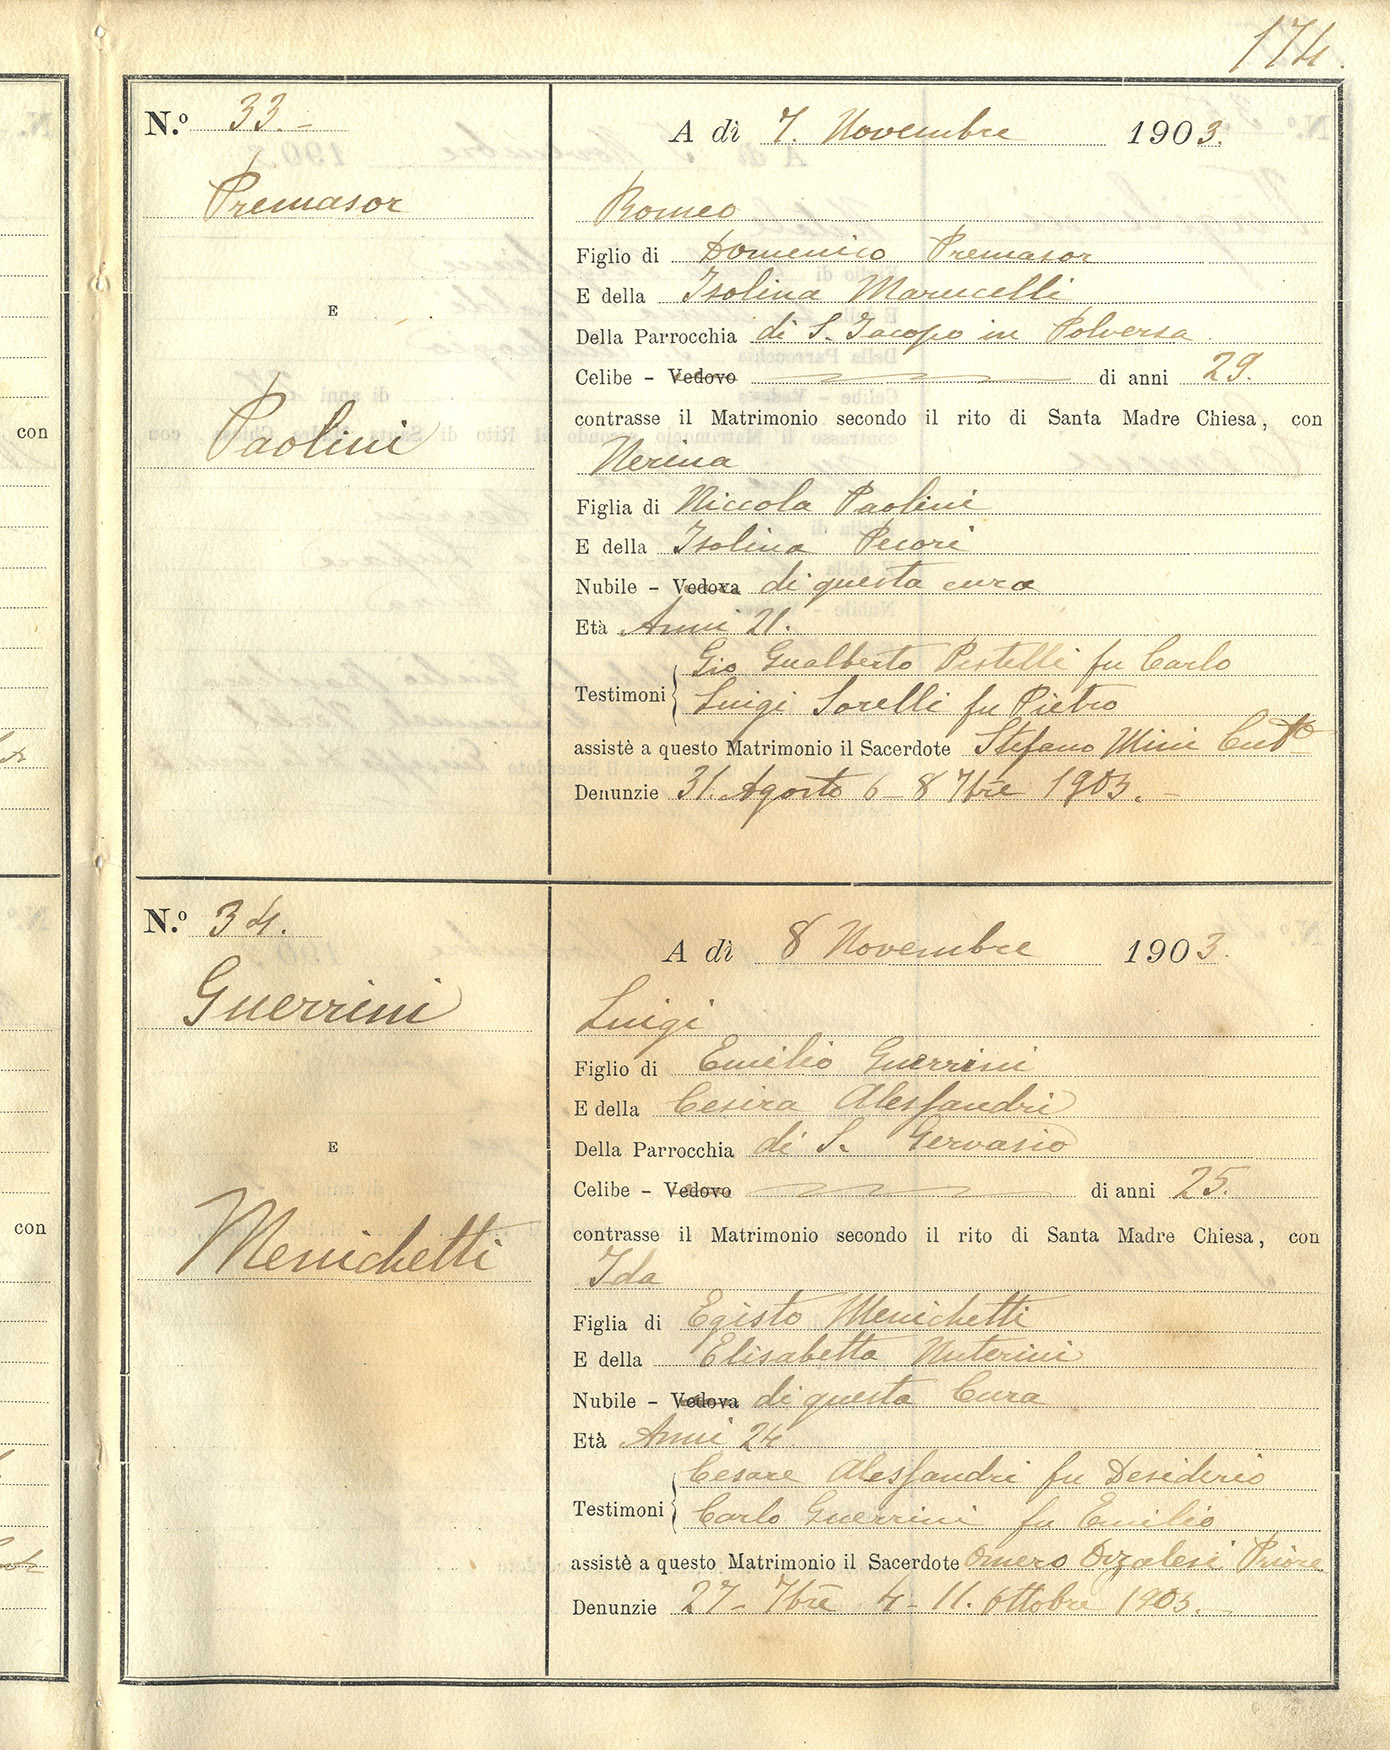 174.
N.º 33.-
Premasor
E
Paolini
A dì 7. Novembre 1903.
Romeo
Figlio di Domenico Premasor
E della Isolina Marucelli
Della Parrocchia di S. Jacopo in Polversa
Celibe - Vedovo di anni 29.
contrasse il Matrimonio secondo il rito di Santa Madre Chiesa, con
Nerina
Figlia di Niccola Paolini
E della Isolina Pecori
Nubile - Vedova di questa cura
Età Anni 21.
Testimoni { Gio Gualberto Pestelli fu Carlo
Luigi Sorelli fu Pietro
assistè a questo Matrimonio il Sacerdote Stefano Mini Cuto
Denunzie 31. Agosto 6-8 7bre 1903.-
N.º 34.
Guerrini
E
Menichetti
A dì 8 Novembre 1903.
Luigi
Figlio di Emilio Guerrini
E della Cesira Alessandri
Della Parrocchia di S. Gervasio
Celibe - Vedovo di anni 25.
contrasse il Matrimonio secondo il rito di Santa Madre Chiesa, con
Ida
Figlia di Egisto Menichetti
E della Elisabetta Nuterini
Nubile - Vedova di questa Cura
Età Anni 24
Testimoni { Cesare Alessandri fu Desiderio
Carlo Guerrini fu Emilio
assistè a questo Matrimonio il Sacerdote Omero Orzalesi Priore
Denunzie 27- 7bre 4-11. Ottobre 1903.-
con
con